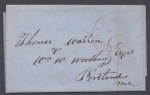 Thomas Warren
&
Wm W Woodbury Esqrs
Portland
Me